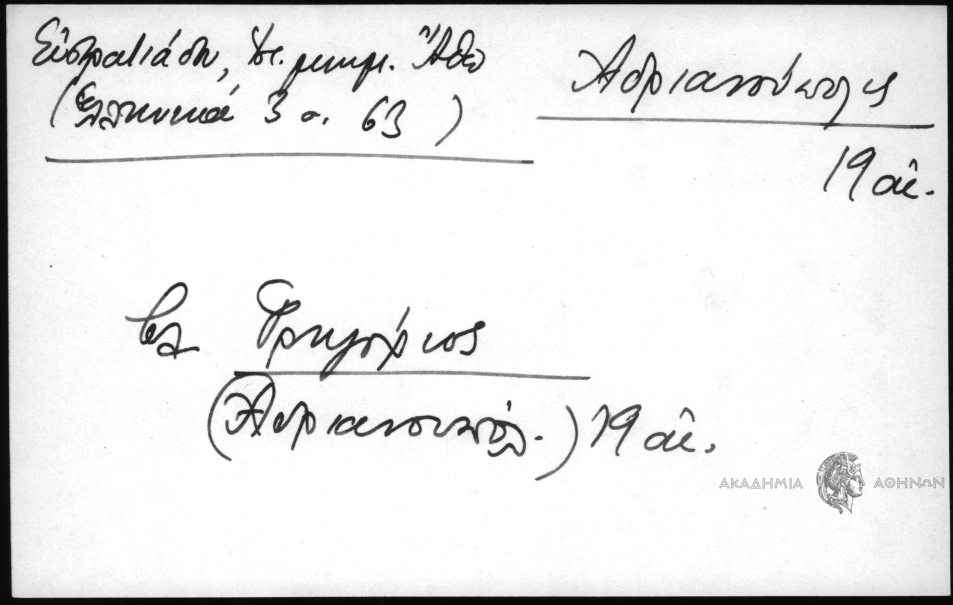 Εὐστρατιάδου, Ἱστ. μνημ. Ἄθω
(Ἑλληνικά 3 σ. 63)
Ἀδριανούπολις
19 αἰ.
βλ Γρηγόριος
(Ἀδριανουπόλ.) 19 αἰ.
ΑΚΑΔΗΜΙΑ ΑΘΗΝΩΝ